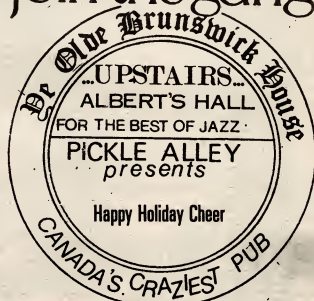 join the gang
Ye Olde Brunswick House
...UPSTAIRS...
ALBERT'S HALL
FOR THE BEST OF JAZZ
PICKLE ALLEY
presents
Happy Holiday Cheer
CANADA'S CRAZIEST PUB